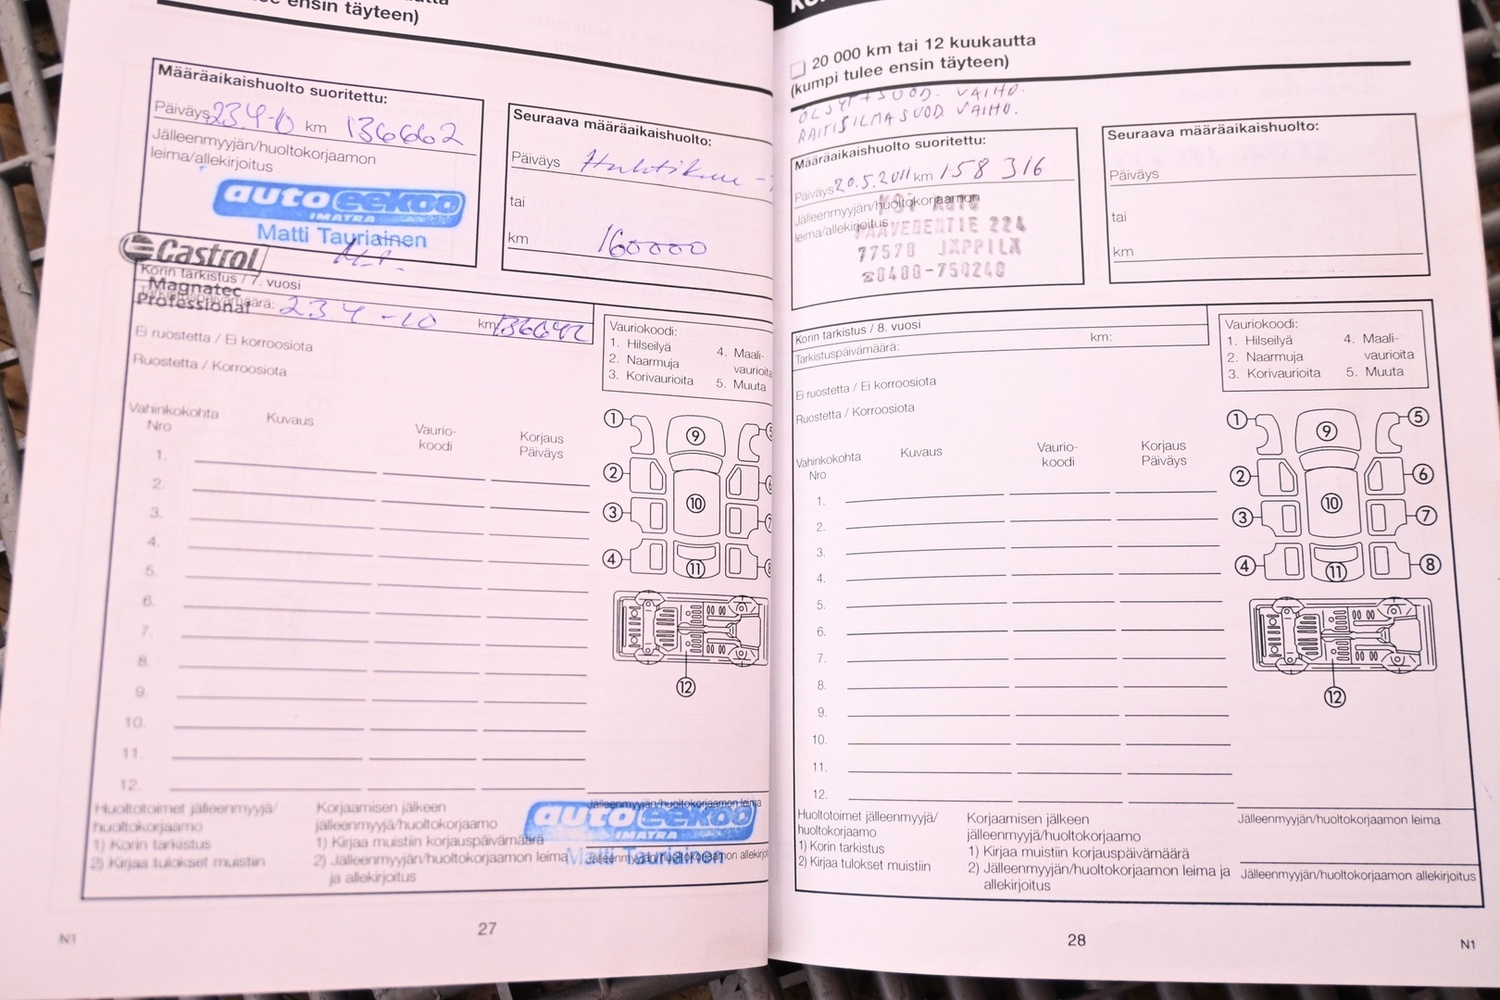 ensin täyteen)
Määräaikaishuolto suoritettu:
Päiväys 23 4-10 km 136662
Jälleenmyyjän/huoltokorjaamon
leima/allekirjoitus
auto eekoo
IMATRA
Matti Tauriainen
Seuraava määräaikaishuolto:
Päiväys Huhtikuu
tai
km 160000
Castrol
Magnatec
Professional
Korin tarkistus / 7. vuosi
23 4 -10 km
Ei ruostetta / Ei korroosiota
Ruostetta / Korroosiota
Vauriokoodi:
1. Hilseilyä
2. Naarmuja
3. Korivaurioita
4. Maali-
vaurioita
5. Muuta
Vahinkokohta
Nro
Kuvaus
Vaurio-
koodi
Korjaus
Päiväys
1.
2.
3.
4.
5.
6.
7.
8.
9.
10.
11.
12.
1
2
3
4
9
10
11
12
Huoltotoimet jälleenmyyjä/
huoltokorjaamo
1) Korin tarkistus
2) Kirjaa tulokset muistiin
Korjaamisen jälkeen
jälleenmyyjä/huoltokorjaamo
1) Kirjaa muistiin korjauspäivämäärä
2) Jälleenmyyjän/huoltokorjaamon leima
ja allekirjoitus
Jälleenmyyjän/huoltokorjaamon leima
auto eekoo
IMATRA
Matti Tauriainen
27
N1
20 000 km tai 12 kuukautta
(kumpi tulee ensin täyteen)
ÖLJY+SUOD. VAIHD.
RAITISILMASUOD. VAIHD.
Määräaikaishuolto suoritettu:
Päiväys 20.5.2011 km 158 316
Jälleenmyyjän/huoltokorjaamon
leima/allekirjoitus
224
77570 JÄPPILÄ
☎0400-750240
Seuraava määräaikaishuolto:
Päiväys
tai
km
Korin tarkistus / 8. vuosi
Tarkistuspäivämäärä: km:
Ei ruostetta / Ei korroosiota
Ruostetta / Korroosiota
Vauriokoodi:
1. Hilseilyä
2. Naarmuja
3. Korivaurioita
4. Maali-
vaurioita
5. Muuta
Vahinkokohta
Nro
Kuvaus
Vaurio-
koodi
Korjaus
Päiväys
1.
2.
3.
4.
5.
6.
7.
8.
9.
10.
11.
12.
1
2
3
4
5
6
7
8
9
10
11
12
Huoltotoimet jälleenmyyjä/
huoltokorjaamo
1) Korin tarkistus
2) Kirjaa tulokset muistiin
Korjaamisen jälkeen
jälleenmyyjä/huoltokorjaamo
1) Kirjaa muistiin korjauspäivämäärä
2) Jälleenmyyjän/huoltokorjaamon leima ja
allekirjoitus
Jälleenmyyjän/huoltokorjaamon leima
Jälleenmyyjän/huoltokorjaamon allekirjoitus
28
N1